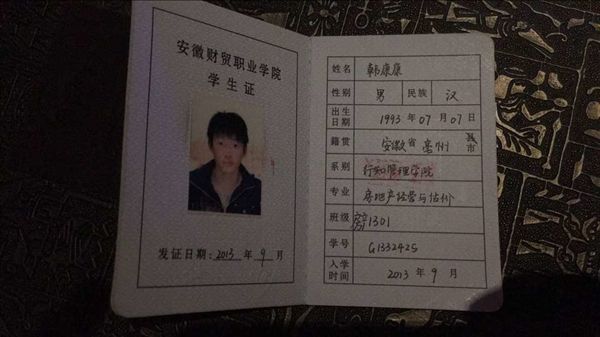 安徽财贸职业学院
学生证
发证日期：2013 年 9 月
姓名 韩康康
性别 男 民族 汉
出生日期 1993 年 07 月 07 日
籍贯 安徽 省 亳州 县市
系别 行知管理学院
专业 房地产经营与估价
班级 房1301
学号 G1332425
入学时间 2013 年 9 月